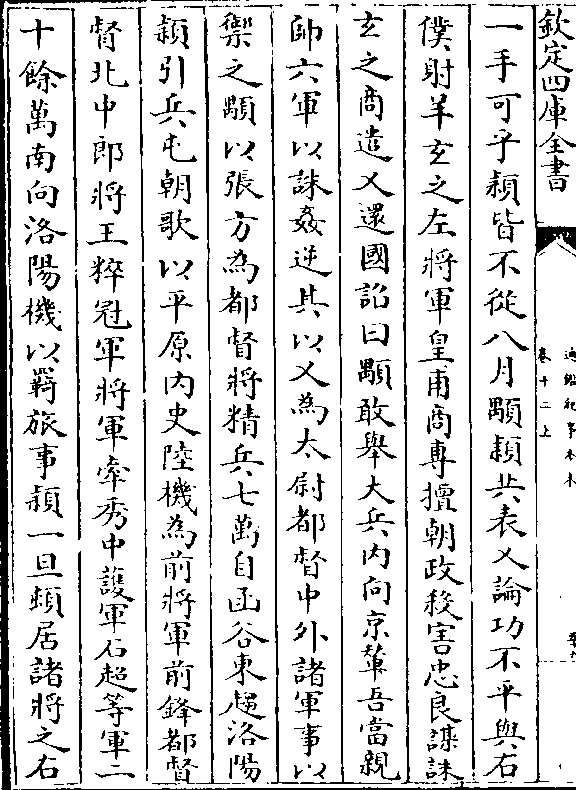 欽定四庫全書
通鑑紀事本末
卷十二上
一手可乎穎皆不從八月顒穎共表乂論功不平與右
僕射羊玄之左將軍皇甫商專擅朝政殺害忠良謀誅
玄之商遣乂還國詔曰顒敢舉大兵内向京輦吾當親
帥六軍以誅姦逆其以乂為太尉都督中外諸軍事以
禦之顒以張方為都督將精兵七萬自函谷東趨洛陽
穎引兵屯朝歌以平原内史陸機為前將軍前鋒都督
督北中郎將王粹冠軍將軍牽秀中護軍石超等軍二
十餘萬南向洛陽機以羈旅事穎一旦頓居諸將之右